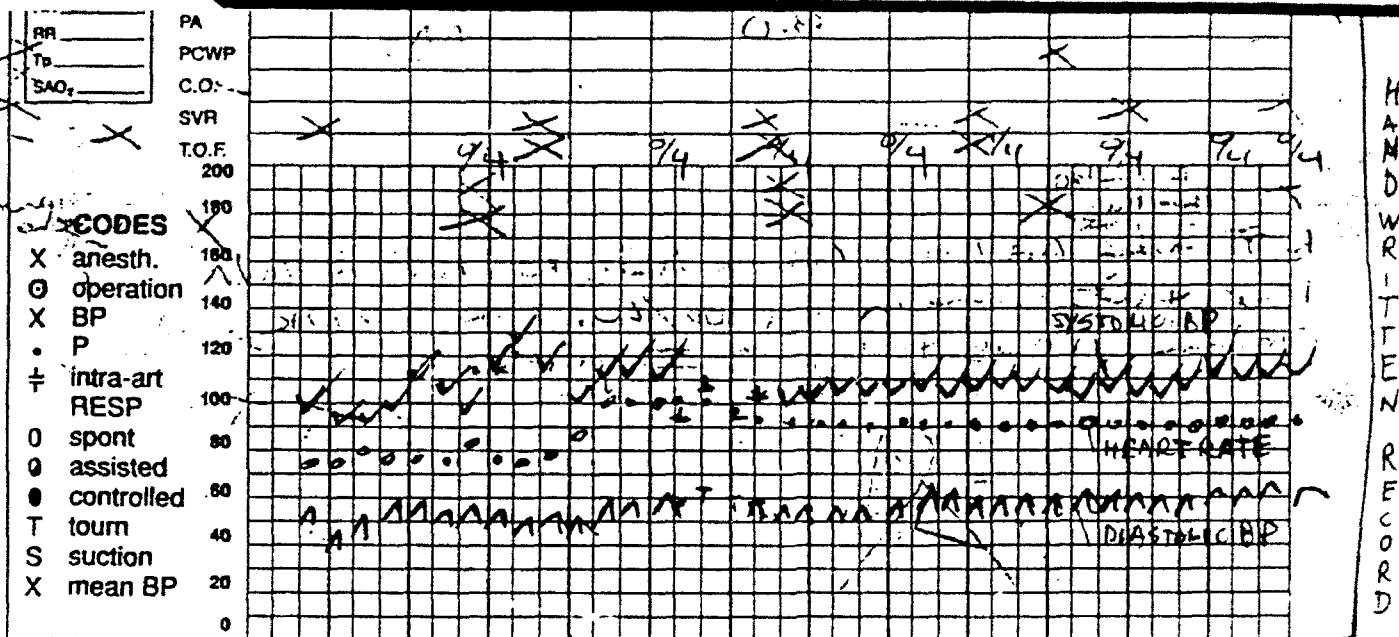 RR
Tp
SAO₂
PA
PCWP
C.O.
SVR
T.O.F.
0/4 0/4 0/4 0/4 0/4 0/4 0/4
200
180
160
140
120
100
80
60
40
20
0
CODES
X anesth.
ʘ operation
X BP
• P
intra-art
RESP
0 spont
assisted
controlled
T tourn
S suction
X mean BP
SYSTOLIC BP
HEART RATE
DIASTOLIC BP
HANDWRITTEN RECORD